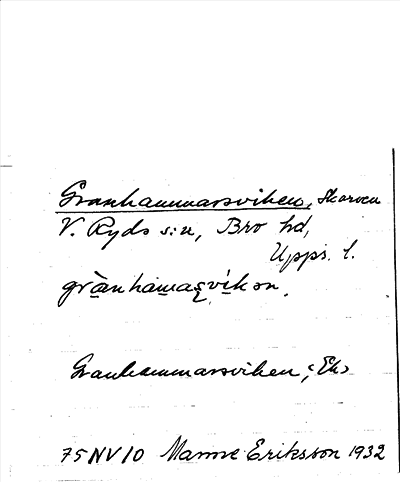 Granhammarsviken, Skarven
V. Ryds s:n, Bro hd,
Upps. l.
grànhamaşvíkən.
Granhammarsviken; Ek.
75NV10 Manne Eriksson 1932